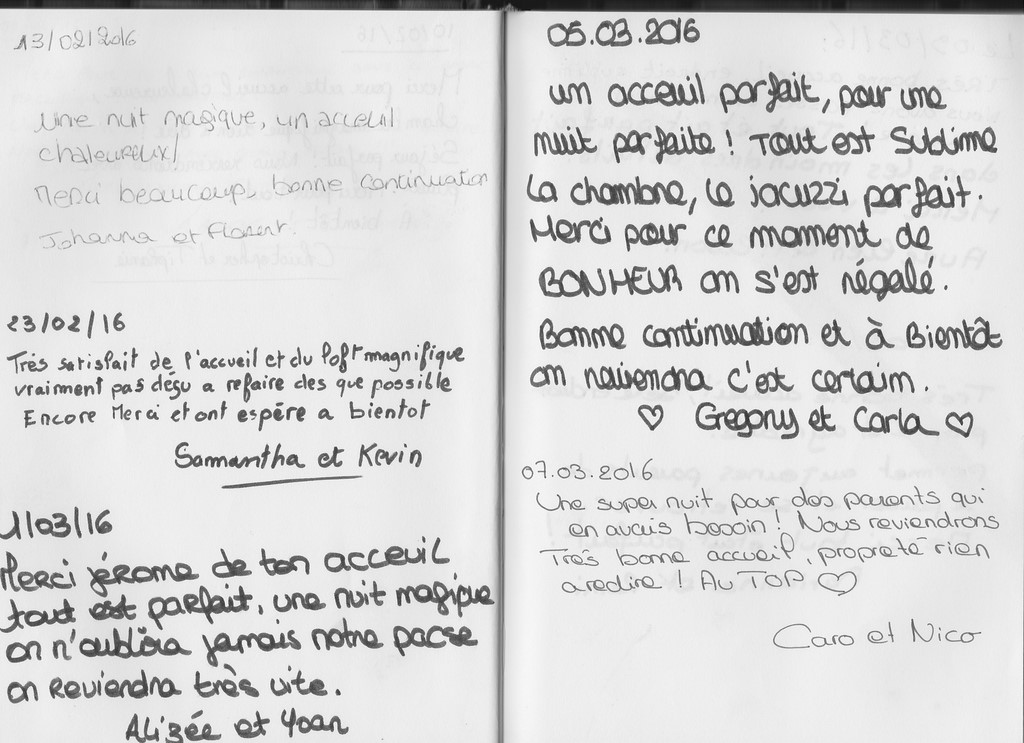 13/02/2016
Une nuit magique, un acceuil
chaleureux/
Merci beaucoup, bonne continuation
Johanna et Florent.
23/02/16
Très satisfait de l'accueil et du loft magnifique
vraiment pas déçu a refaire des que possible
Encore Merci et ont espére a bientot
Samantha et Kevin
1/03/16
Merci jérome de ton acceuil
tout est parfait, une nuit magique
on n'oublira jamais notre pacse
on Reviendra très vite.
Alizée et Yoan
05.03.2016
un acceuil parfait, pour une
nuit parfaite ! Tout est Sublime
la chambre, le jacuzzi parfait.
Merci pour ce moment de
BONHEUR on s'est régalé.
Bonne continuation et à Bientôt
on reviendra c'est certain.
♡ Gregory et Carla ♡
07.03.2016
Une super nuit pour des parents qui
en avais besoin ! Nous reviendrons
Très bonne accueil, propreté rien
a redire ! Au TOP ♡
Caro et Nico